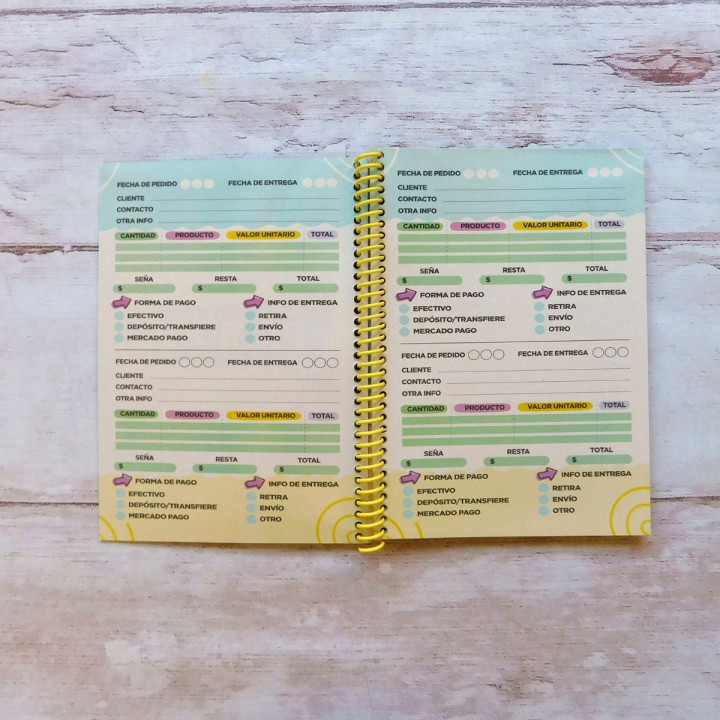 FECHA DE PEDIDO FECHA DE ENTREGA
CLIENTE
CONTACTO
OTRA INFO
CANTIDAD PRODUCTO VALOR UNITARIO TOTAL
SEÑA RESTA TOTAL
$ $ $
FORMA DE PAGO INFO DE ENTREGA
EFECTIVO RETIRA
DEPÓSITO/TRANSFIERE ENVÍO
MERCADO PAGO OTRO
FECHA DE PEDIDO FECHA DE ENTREGA
CLIENTE
CONTACTO
OTRA INFO
CANTIDAD PRODUCTO VALOR UNITARIO TOTAL
SEÑA RESTA TOTAL
$ $ $
FORMA DE PAGO INFO DE ENTREGA
EFECTIVO RETIRA
DEPÓSITO/TRANSFIERE ENVÍO
MERCADO PAGO OTRO
FECHA DE PEDIDO FECHA DE ENTREGA
CLIENTE
CONTACTO
OTRA INFO
CANTIDAD PRODUCTO VALOR UNITARIO TOTAL
SEÑA RESTA TOTAL
$ $ $
FORMA DE PAGO INFO DE ENTREGA
EFECTIVO RETIRA
DEPÓSITO/TRANSFIERE ENVÍO
MERCADO PAGO OTRO
FECHA DE PEDIDO FECHA DE ENTREGA
CLIENTE
CONTACTO
OTRA INFO
CANTIDAD PRODUCTO VALOR UNITARIO TOTAL
SEÑA RESTA TOTAL
$ $ $
FORMA DE PAGO INFO DE ENTREGA
EFECTIVO RETIRA
DEPÓSITO/TRANSFIERE ENVÍO
MERCADO PAGO OTRO